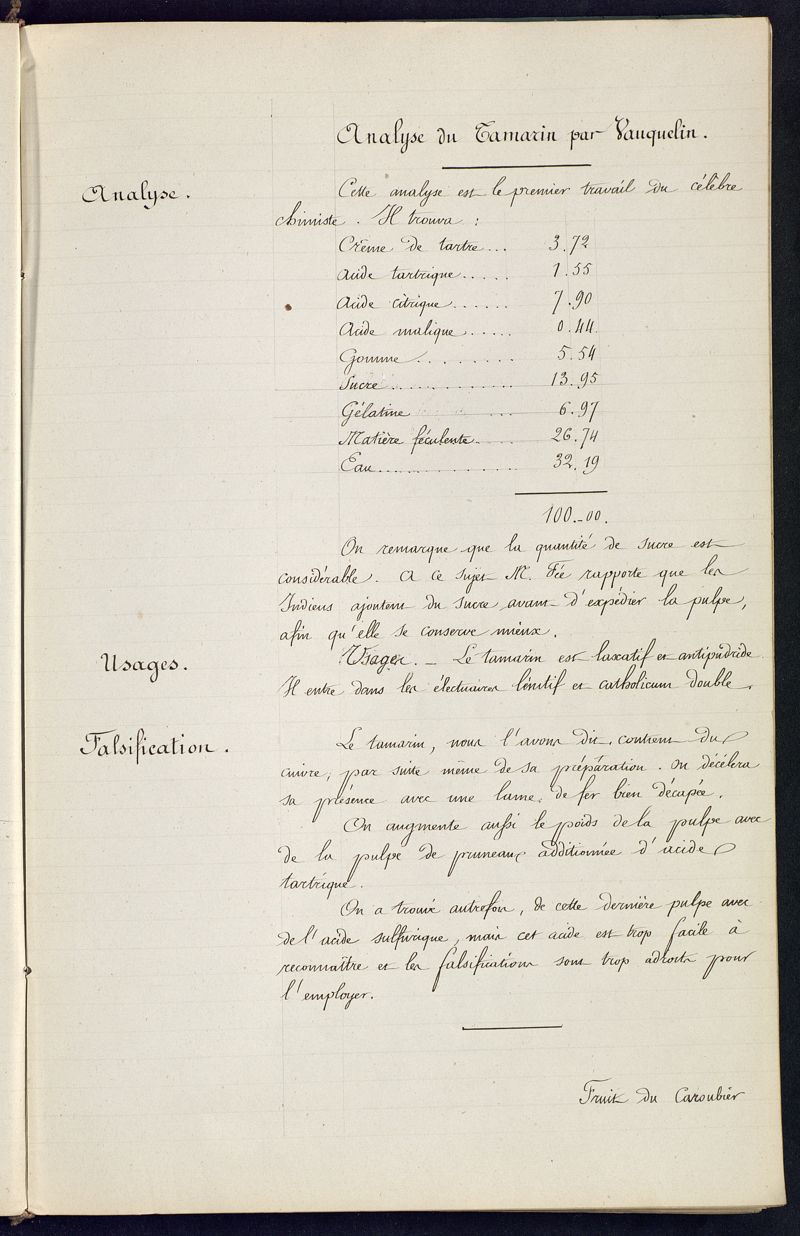 Analyse du Tamarin par Vauquelin.
Analyse.
Cette analyse est le premier travail du célèbre
chimiste. Il trouva :
Crème de tartre... 3.72
Acide tartrique..... 1.55
Acide citrique...... 7.90
Acide malique..... 0.44
Gomme ........ 5.54
Sucre............. 13.95
Gélatine ... 6.97
Matière féculente..... 26.74
Eau............... 32.19
100.-00.
On remarque que la quantité de sucre est
considérable. A ce sujet M. Fée rapporte que les
Indiens ajoutent du sucre avant d'expédier la pulpe,
afin qu'elle se conserve mieux.
Usages.
Usages. - Le tamarin est laxatif et antiputride.
Il entre dans les électuaires lénitif et catholicum double.
Falsification.
Le tamarin, nous l'avons dit, contient du
cuivre, par suite même de sa préparation. On décèlera
sa présence avec une lame de fer bien décapée.
On augmente aussi le poids de la pulpe avec
de la pulpe de pruneaux additionnée d'acide
tartrique.
On a trouvé autrefois, de cette dernière pulpe avec
de l'acide sulfurique, mais cet acide est trop facile à
reconnaître et les falsifications sont trop adroits pour
l'employer.
Fruit du Caroubier